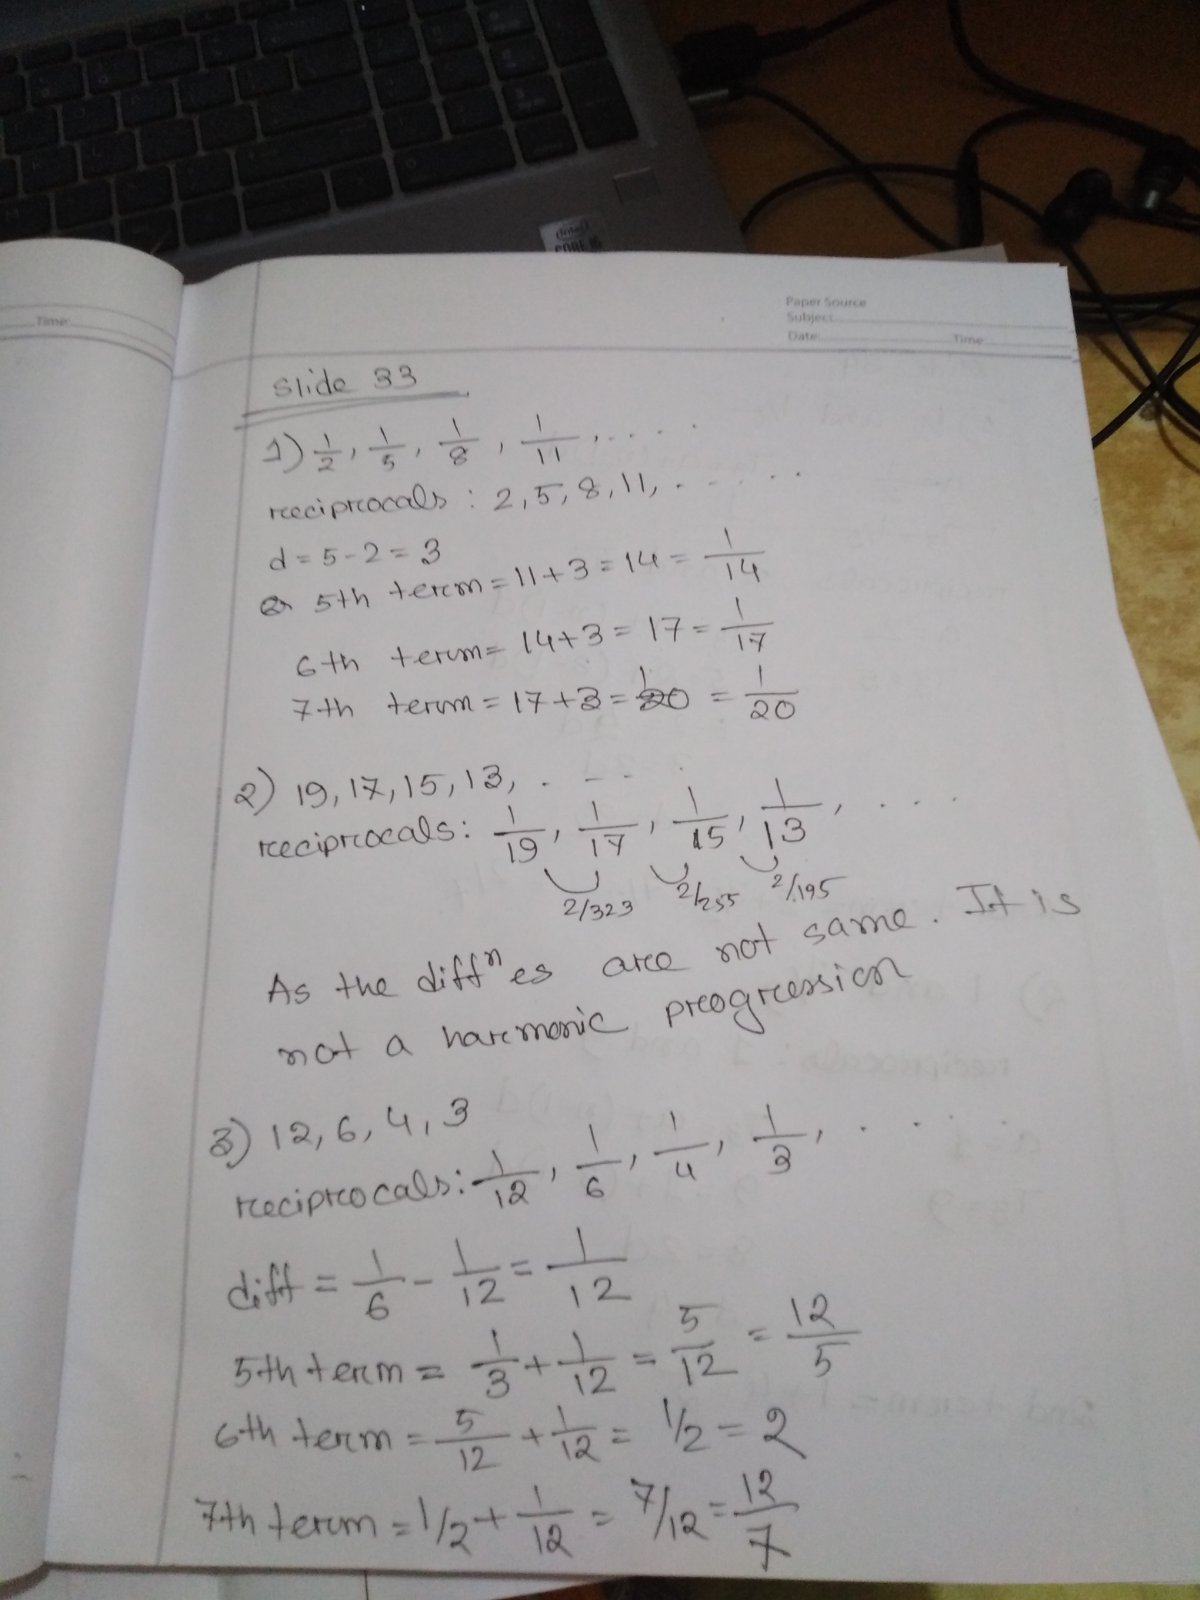 Time:
Paper Source
Subject:
Date: Time
slide 33
1) 1/2, 1/5, 1/8, 1/11, ....
reciprocals : 2, 5, 8, 11, .....
d = 5 - 2 = 3
5th term = 11 + 3 = 14 = 1/14
6th term = 14 + 3 = 17 = 1/17
7th term = 17 + 3 = 20 = 1/20
2) 19, 17, 15, 13, ....
reciprocals: 1/19, 1/17, 1/15, 1/13, ...
2/323 2/255 2/195
As the diffⁿes are not same. It is
not a harmonic progression
3) 12, 6, 4, 3
reciprocals: 1/12, 1/6, 1/4, 1/3, ...
diff = 1/6 - 1/12 = 1/12
5th term = 1/3 + 1/12 = 5/12 = 12/5
6th term = 5/12 + 1/12 = 1/2 = 2
7th term = 1/2 + 1/12 = 7/12 = 12/7